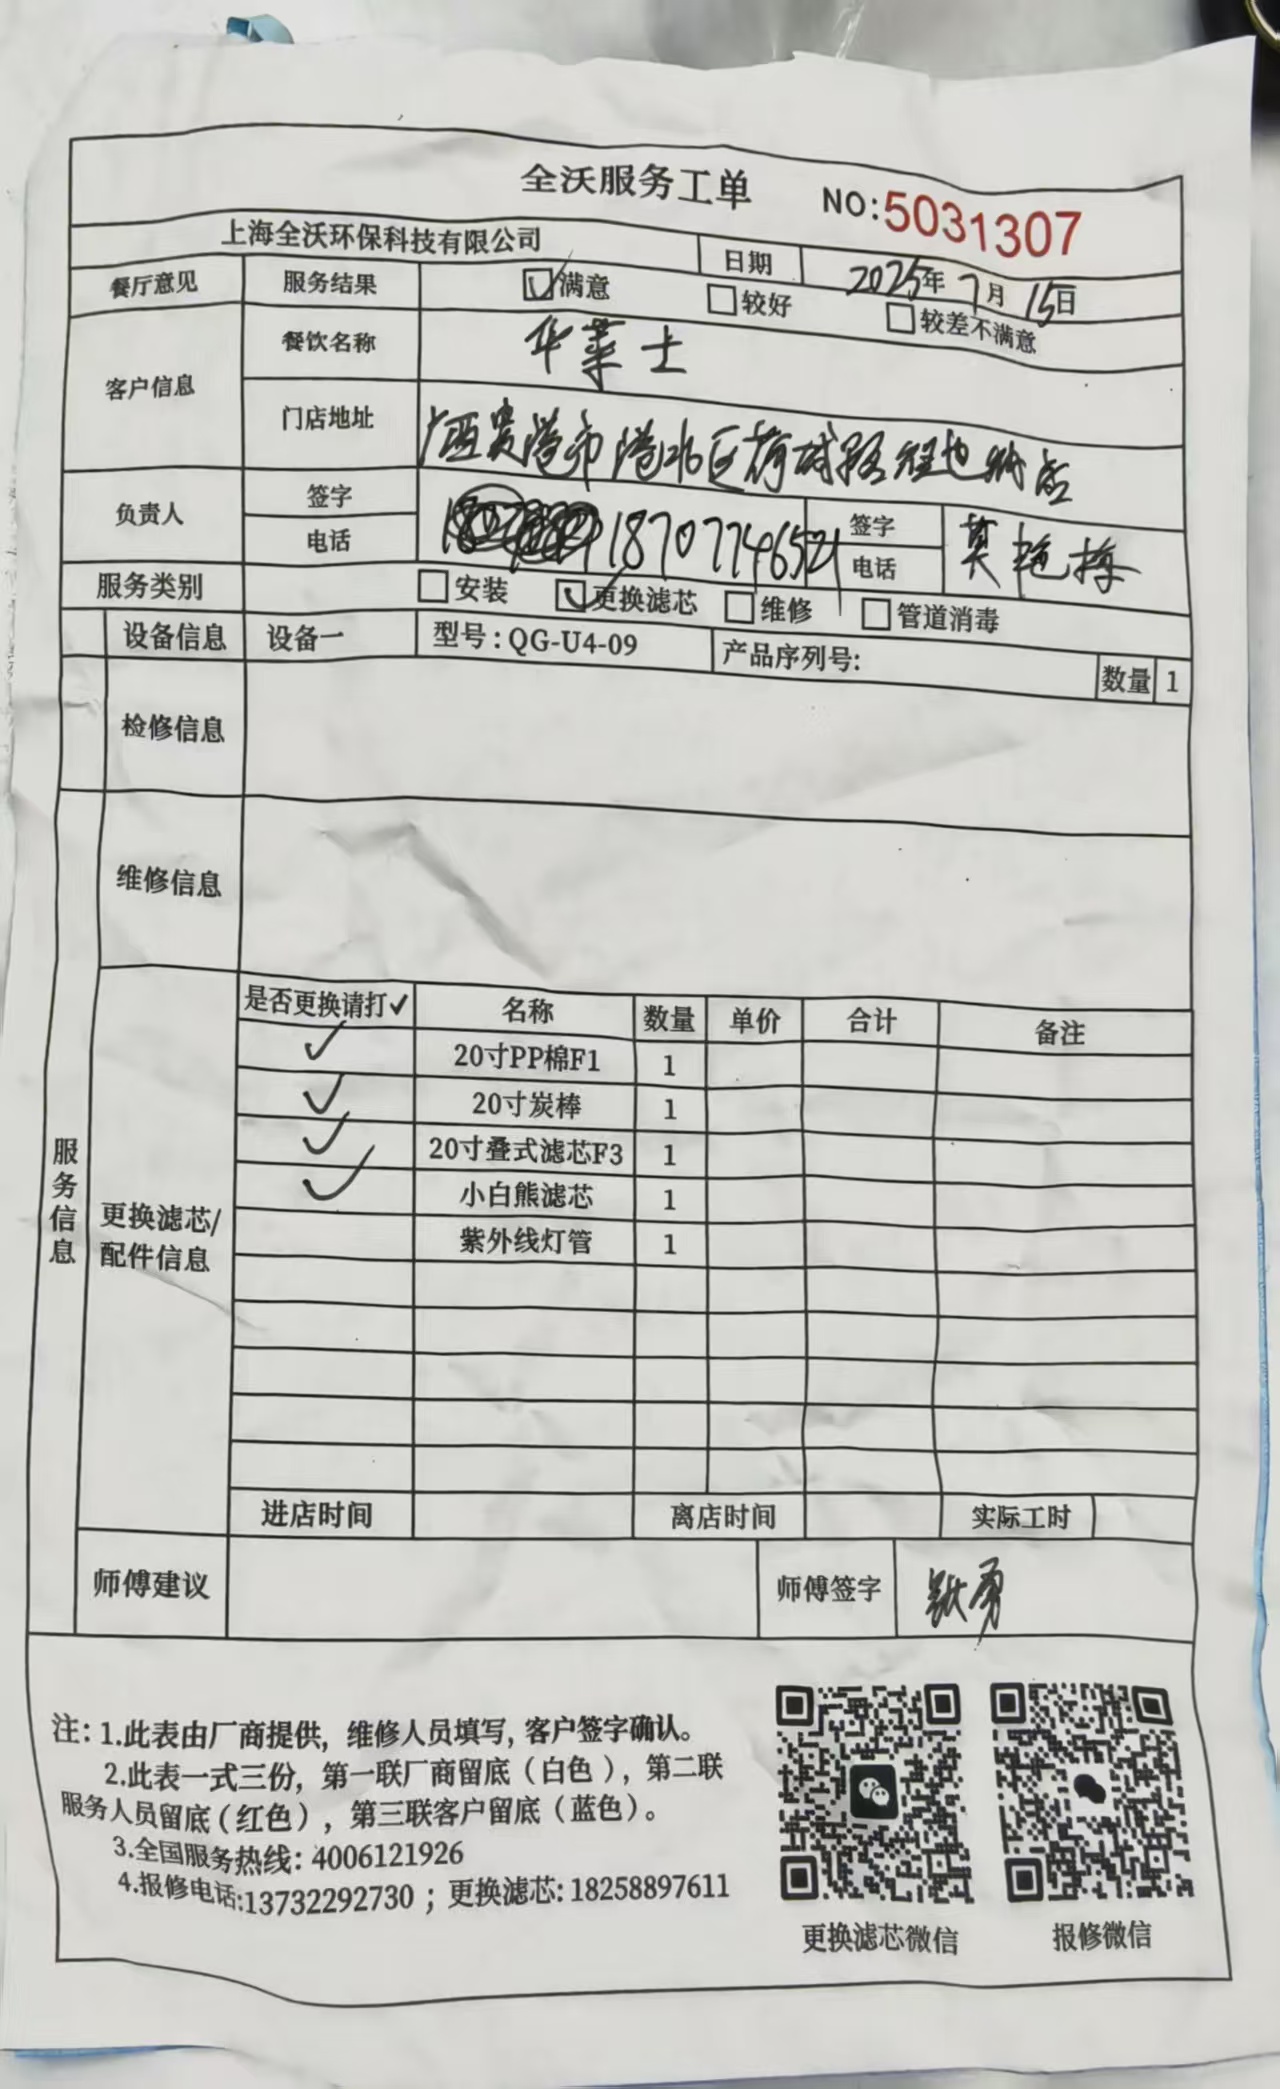 全沃服务工单 NO:5031307
上海全沃环保科技有限公司 日期 2025年7月15日
餐厅意见 服务结果 ☑满意 □较好 □较差不满意
客户信息 餐饮名称 华莱士
门店地址 广西贵港市港北区荷城路
负责人 签字 签字
电话 18707746521 电话 莫艳梅
服务类别 □安装 ☑更换滤芯 □维修 □管道消毒
设备信息 设备一 型号:QG-U4-09 产品序列号: 数量 1
检修信息
维修信息
服务信息
更换滤芯/
配件信息
是否更换请打✓ 名称 数量 单价 合计 备注
✓ 20寸PP棉F1 1
✓ 20寸炭棒 1
✓ 20寸叠式滤芯F3 1
✓ 小白熊滤芯 1
紫外线灯管 1
进店时间 离店时间 实际工时
师傅建议 师傅签字
注: 1.此表由厂商提供，维修人员填写，客户签字确认。
2.此表一式三份，第一联厂商留底（白色），第二联
服务人员留底（红色），第三联客户留底（蓝色）。
3.全国服务热线: 4006121926
4.报修电话:13732292730 ; 更换滤芯: 18258897611
更换滤芯微信 报修微信